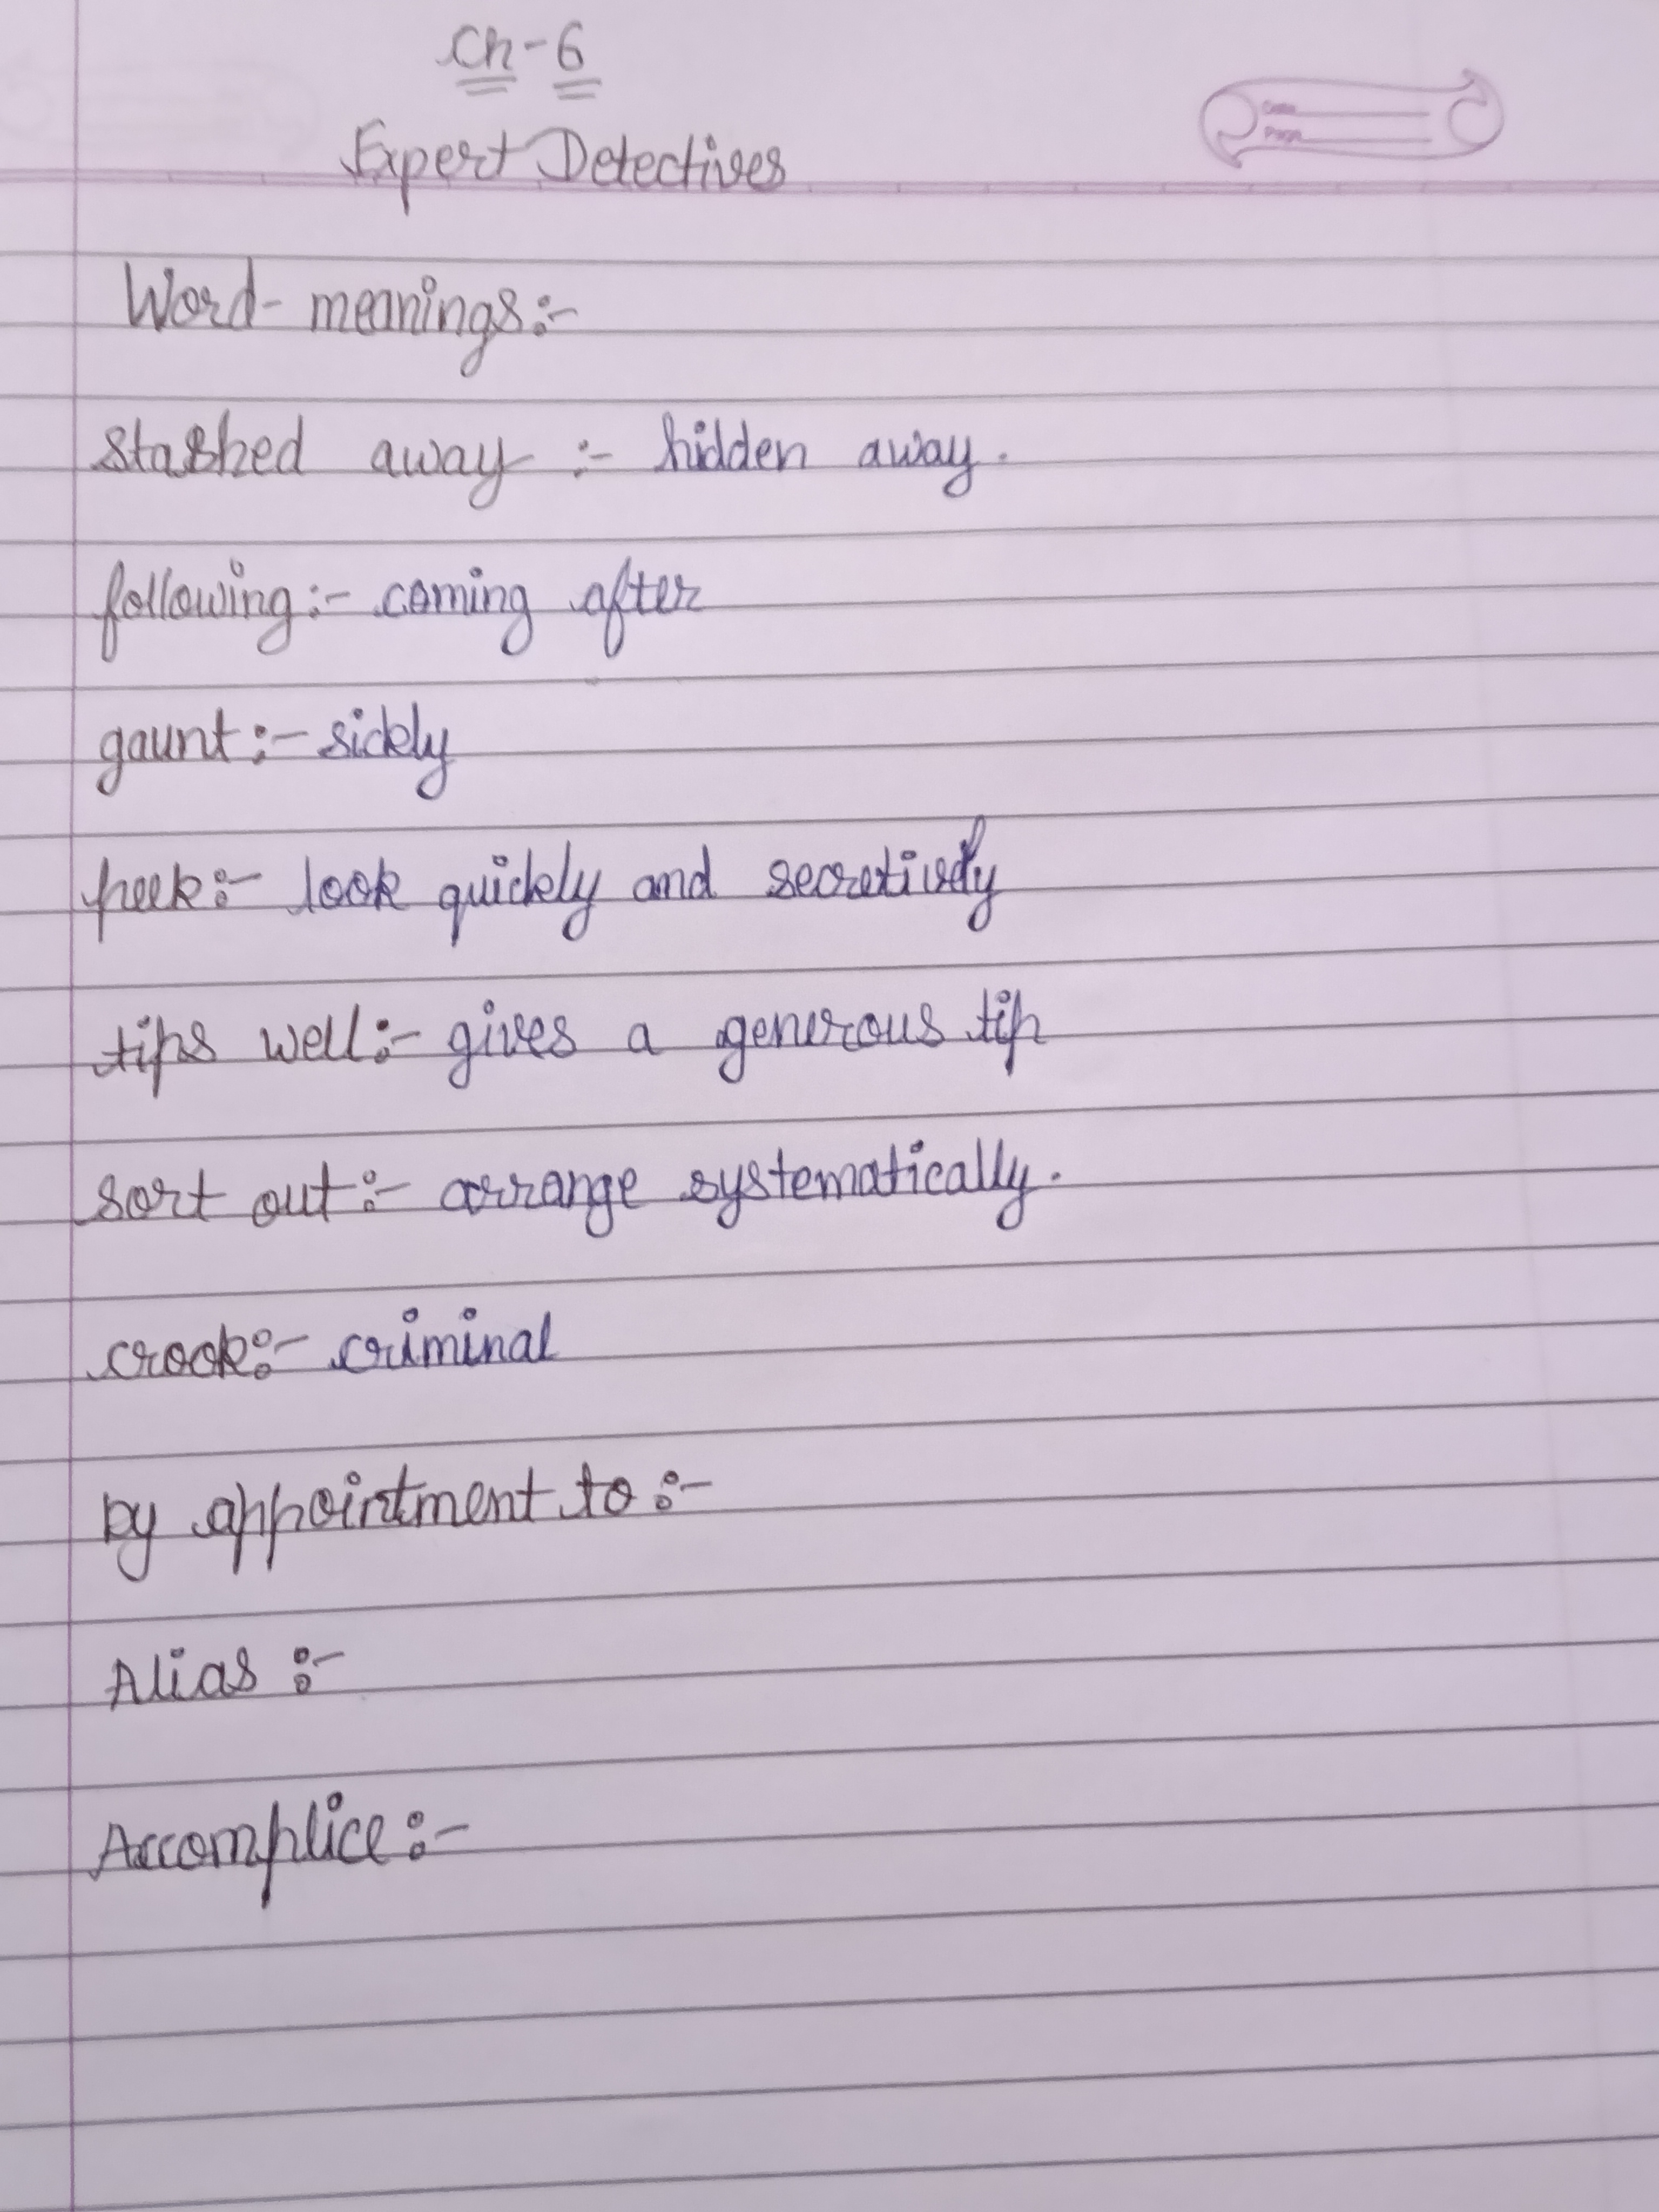 Ch-6
Date
Page
Expert Detectives
Word-meanings:-
stashed away :- hidden away.
following:- coming after
gaunt:- sickly
peek:- look quickly and secretively
tips well:- gives a generous tip
sort out:- arrange systematically.
crook:- criminal
by appointment to :-
Alias :-
Accomplice:-